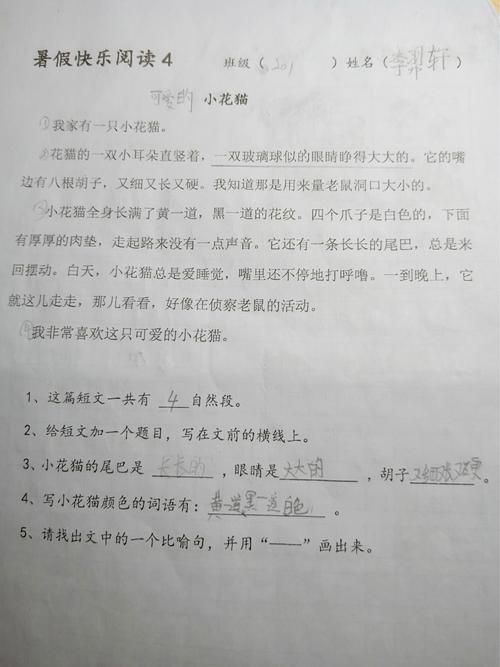 暑假快乐阅读4 班级（201）姓名（李羿轩）
可爱的 小花猫
①我家有一只小花猫。
②花猫的一双小耳朵直竖着，一双玻璃球似的眼睛睁得大大的。它的嘴
边有八根胡子，又细又长又硬。我知道那是用来量老鼠洞口大小的。
③小花猫全身长满了黄一道，黑一道的花纹。四个爪子是白色的，下面
有厚厚的肉垫，走起路来没有一点声音。它还有一条长长的尾巴，总是来
回摆动。白天，小花猫总是爱睡觉，嘴里还不停地打呼噜。一到晚上，它
就这儿走走，那儿看看，好像在侦察老鼠的活动。
④我非常喜欢这只可爱的小花猫。
1、这篇短文一共有 4 自然段。
2、给短文加一个题目，写在文前的横线上。
3、小花猫的尾巴是 长长的 ，眼睛是大大的 ，胡子又细又长又硬。
4、写小花猫颜色的词语有：黄一道黑一道白色 。
5、请找出文中的一个比喻句，并用“——”画出来。